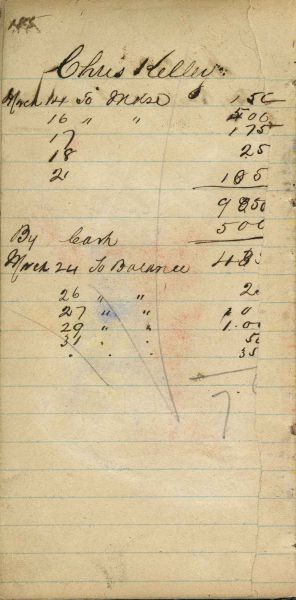 185
Chris Kelley
March 14 To Mdse 1 50
16 " " 4 00
17 1 75
18 25
21 1 85
9 350
5 00
By Cash
March 24 To Balance 4 3
26 " " 2
27 " "
29 " " 1.00
31 . . 50
. . . 35
7